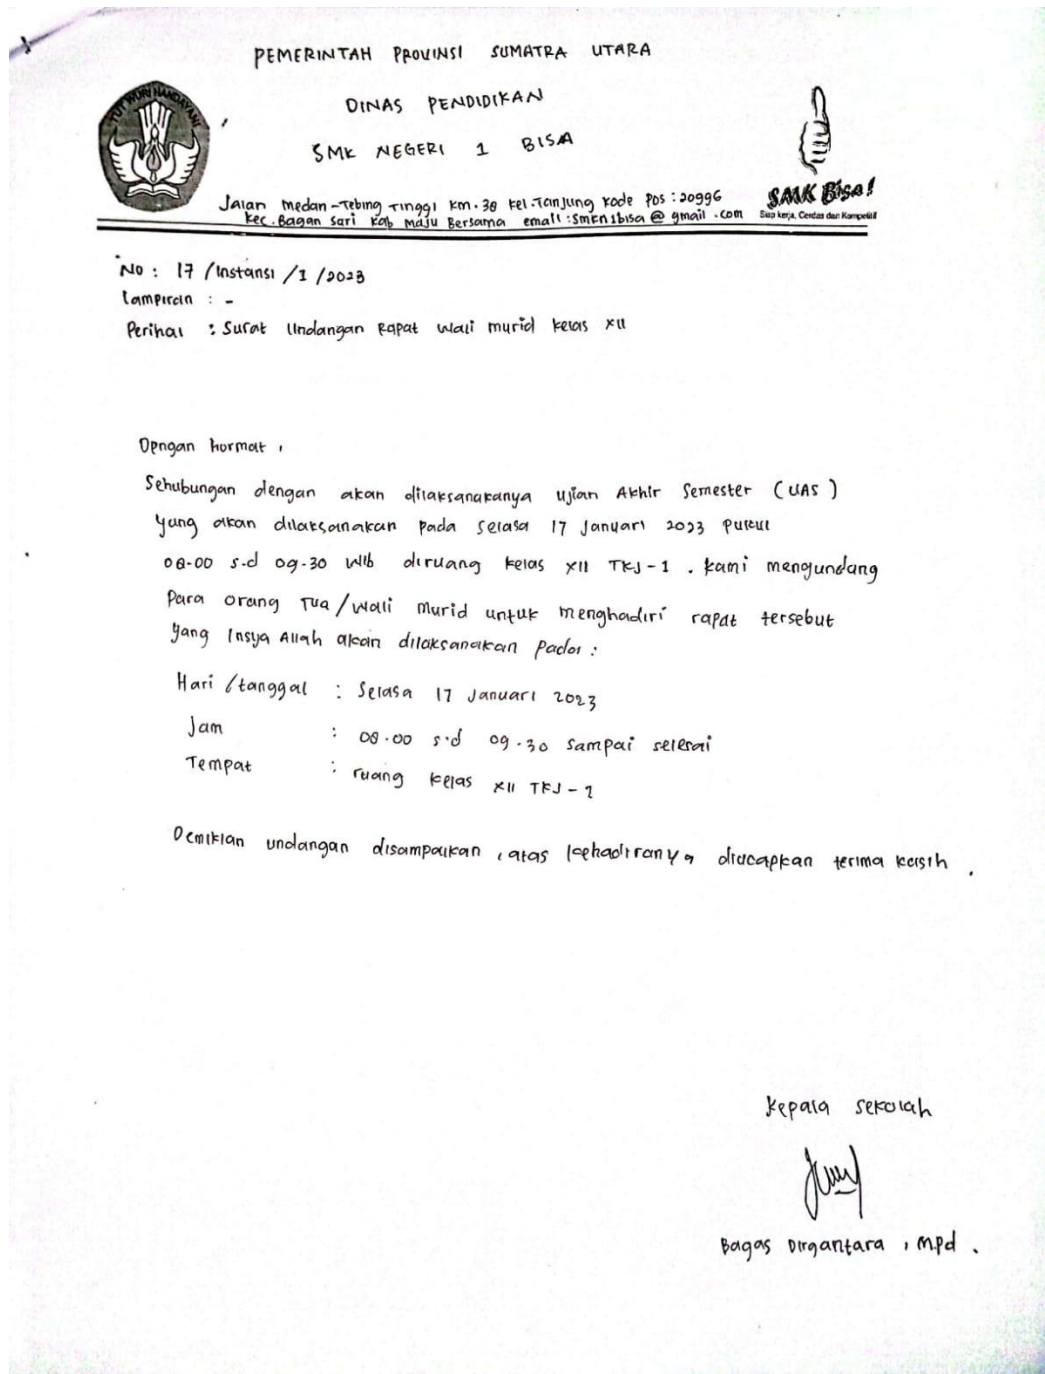 PEMERINTAH PROVINSI SUMATRA UTARA
DINAS PENDIDIKAN
SMK NEGERI 1 BISA
TUT WURI HANDAYANI
SMK Bisa!
Siap kerja, Cerdas dan Kompetitif
Jalan Medan-Tebing Tinggi Km. 38 Kel. Tanjung Kode Pos : 20996
Kec. Bagan Sari Kab Maju Bersama email : Smkn1bisa @ gmail .com
No : 17 /Instansi /1 /2023
Lampiran : -
Perihal : Surat Undangan Rapat Wali murid kelas XII
Dengan hormat ,
Sehubungan dengan akan dilaksanakanya Ujian Akhir Semester (UAS)
yang akan dilaksanakan pada selasa 17 Januari 2023 pukul
08.00 s.d 09.30 WIB diruang kelas XII TKJ-1 . kami mengundang
Para orang Tua /Wali Murid untuk menghadiri rapat tersebut
yang Insya Allah akan dilaksanakan pada :
Hari /tanggal : Selasa 17 Januari 2023
Jam : 08.00 s.d 09.30 sampai selesai
Tempat : ruang kelas XII TKJ - 1
Demikian undangan disampaikan , atas kehadiranya diucapkan terima kasih .
Kepala sekolah
Bagas Dirgantara , M.Pd .